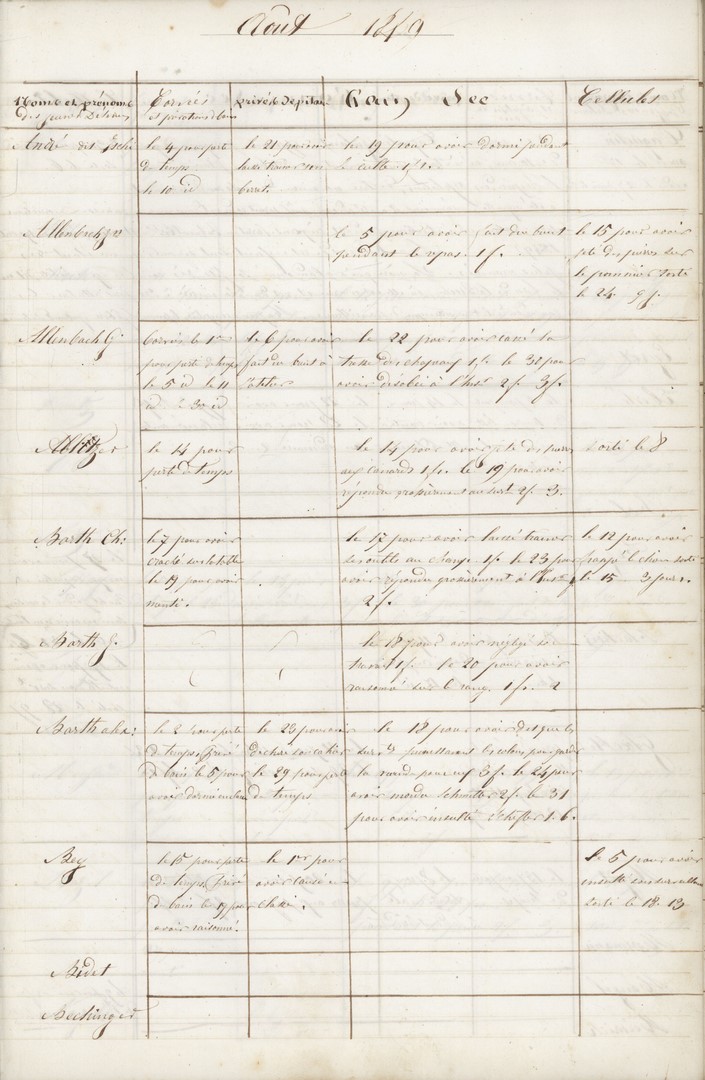 Août 1849
Noms et prénoms
des jeunes Détenus
Corvées
et privations de bains
privé de pitance
Pain Sec
Cellules
André dit
le 4 pour perte
de temps
le 10 id
le 21 pour avoir
laissé trainer son
beret.
le 19 pour avoir dormi pendant
le culte 1 f.
le 5 pour avoir fait du bruit
pendant le repas. 1 f.
le 15 pour avoir
jeté des pierres sur
le pommier sorti
le 24. 9 j.
Allenbach G.
Corvée le 1er
pour perte de temps
le 5 id le 11
id le 30 id
le 6 pour avoir
fait du bruit à
l'atelier
le 22 pour avoir cassé la
1 f. le 30 pour
avoir désobéi à l'Inst. 2 f. 3 f.
le 14 pour
perte de temps
le 14 pour avoir jeté des pierres
aux canards 1 f. le 19 pour avoir
répondu grossièrement au 2 f. 3.
sorti le 8
Barth Ch:
le 7 pour avoir
craché sur la table
le 19 pour avoir
menti.
le 17 pour avoir laissé trainer
ses outils au 1 f. le 23 pour
avoir répondu grossièrement à l'Inst.
2 f.
le 12 pour avoir
frappé sorti
le 15 3 jours.
Barth J.
le 18 pour avoir négligé son
travail 1 f. le 20 pour avoir
raisonné sur le rang. 1 f. 2
Barth Alex:
le 2 pour perte
de temps. Privé
de bain le 5 pour
avoir dormi
le 23 pour avoir
déchiré son cahier
le 29 pour perte
de temps
le 18 pour avoir dit que les
3 f. le 24 pour
avoir mordu Schmitter 2 f. le 31
pour avoir insulté 1. 6.
Bey
le 15 pour perte
de temps. Privé
de bain le 19 pour
avoir raisonné.
le 1er pour
avoir causé en
classe.
le 5 pour avoir
insulté
sorti le 18. 13
Bidet
Bechinger